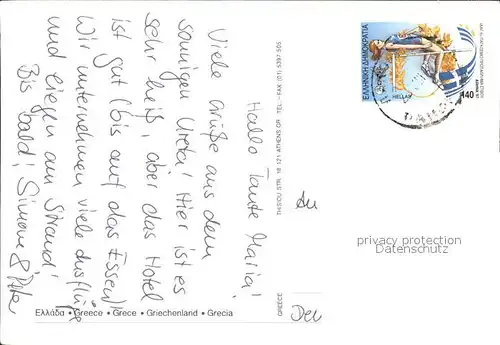 Hallo Tante Maria!
Viele Grüße aus dem
sonnigen Kreta! Hier ist es
sehr heiß, aber das Hotel
ist gut (bis auf das Essen)!
Wir unternehmen viele Ausflüge
und liegen am Strand!
Bis bald! Simone &
Ελλάδα • Greece • Grece • Griechenland • Grecia
THISIOU STR. 18 121 ATHENS GR TEL.-FAX (01) 5397 505
GREECE
An
privacy protection
Datenschutz
ΕΛΛΗΝΙΚΗ ΔΗΜΟΚΡΑΤΙΑ
HELLAS
140